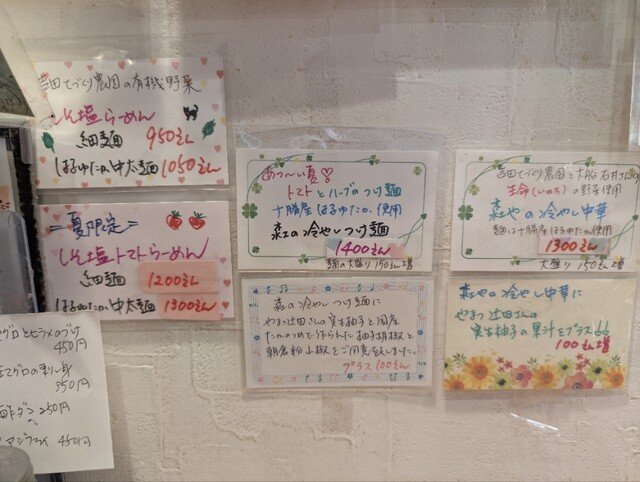 吉田てづくり農園の有機野菜
しそ塩らーめん
細麺 950えん
はるゆたか中太麺 1050えん
=夏限定=
しそ塩トマトらーめん
細麺 1200えん
はるゆたか中太麺 1300えん
グロとヒラメのづけ
450円
350円
250円
アジフライ 450円
あつーい夏♡
トマトとハーブのつけ麺
十勝産 はるゆたか使用
の冷やしつけ麺
1400えん
麺の大盛り 150えん増
の冷やしつけ麺に
やまつ辻田さんの実生柚子と国産
たかのつめで作られた柚子胡椒と
朝倉粉山椒をご用意しました。
プラス100えん
吉田てづくり農園と大船 石井さんの
生命(いのち)の野菜使用
の冷やし中華
麺は十勝産はるゆたか使用
1300えん
大盛り 150えん増
の冷やし中華に
やまつ辻田さんの
実生柚子の果汁をプラス
100えん増